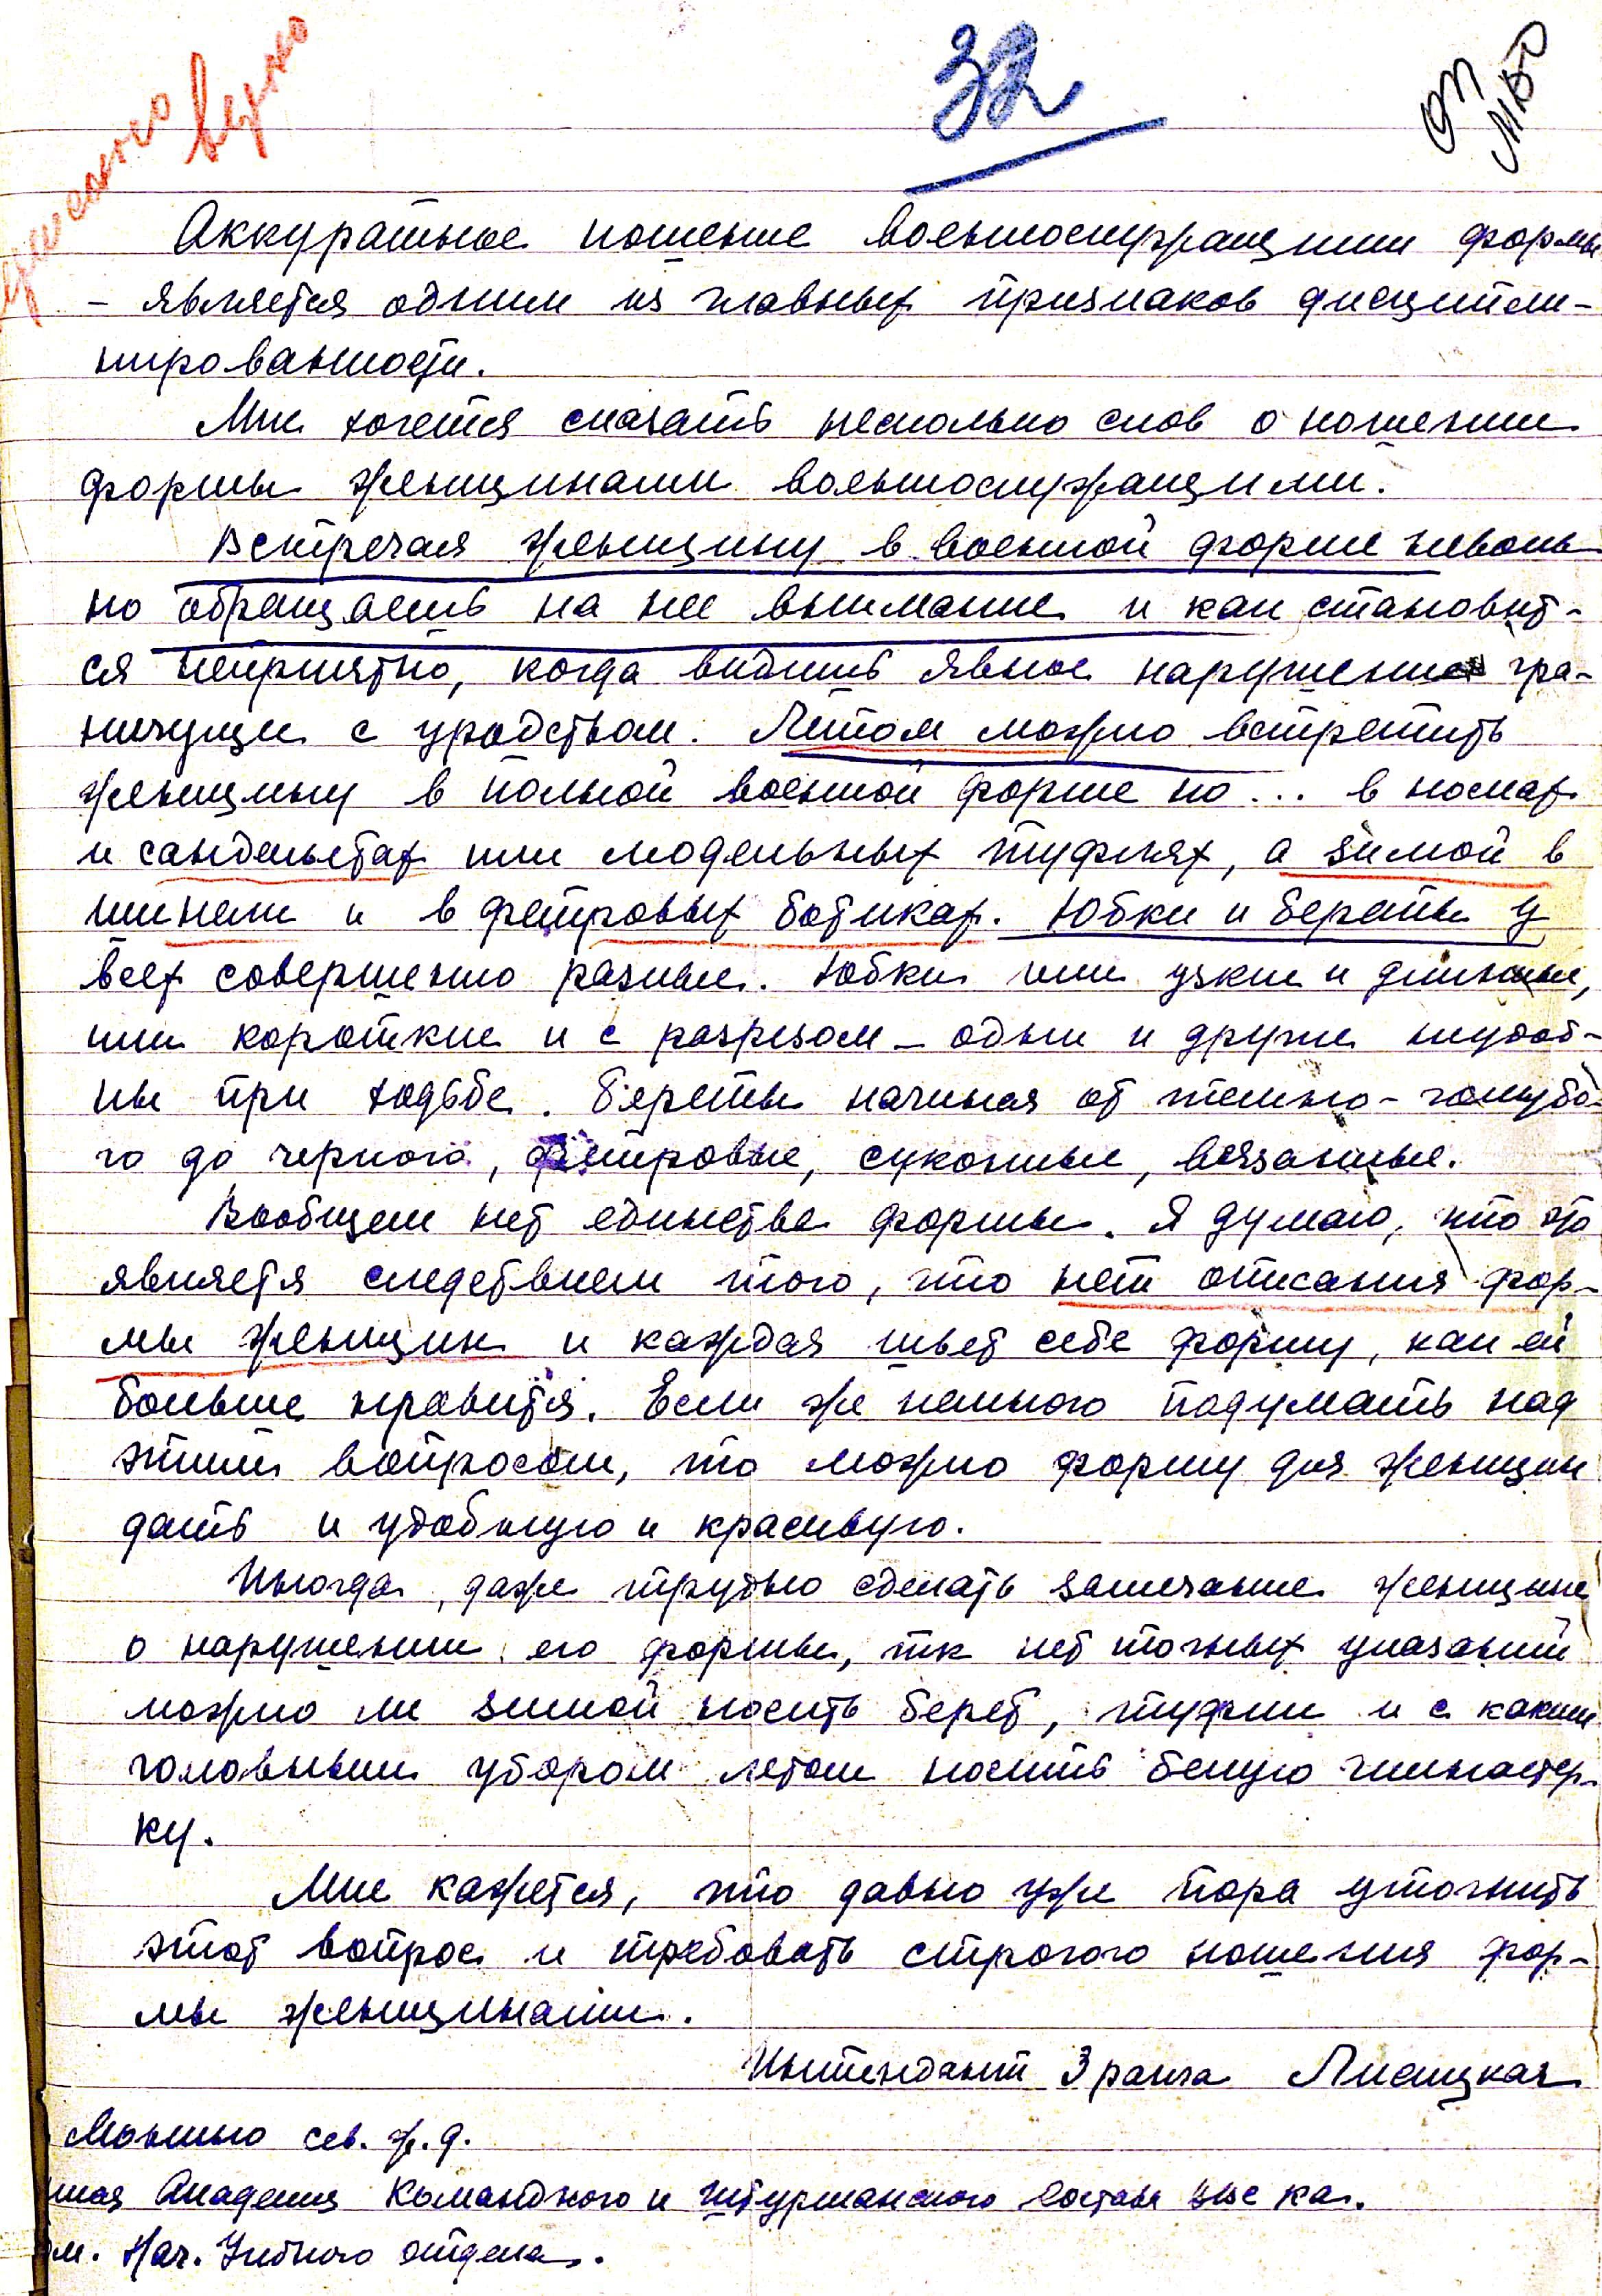 верно
32
Аккуратное ношение военнослужащими формы
- является одним из главных признаков дисципли-
нированности.
Мне хочется сказать несколько слов о ношении
формы женщинами военнослужащими.
Встречая женщину в военной форме неволь-
но обращаешь на нее внимание и как становит-
ся неприятно, когда видишь явное нарушение гра-
ничущее с уродством. Летом можно встретить
женщину в полной военной форме но... в носках
и сандалетах или модельных туфлях, а зимой в
шинели и в фетровых ботиках. Юбки и береты у
всех совершенно разные. Юбки или узкие и длинные,
или короткие и с разрезом - одни и другие неудоб-
ны при ходьбе. Береты начиная от темно-голубо-
го до черного, фетровые, суконные, вязанные.
Вообщем нет единства формы. Я думаю, что это
является следствием того, что нет описания фор-
мы женщин и каждая шьет себе форму, как ей
больше нравится. Если же немного подумать над
этим вопросом, то можно форму для женщин
дать и удобную и красивую.
Иногда, даже трудно сделать замечание женщине
о нарушении ею формы, тк нет точных указаний
можно ли зимой носить берет, туфли и с каким
головным убором летом носить белую гимнастер-
ку.
Мне кажется, что давно уже пора уточнить
этот вопрос и требовать строгого ношения фор-
мы женщинами.
Интендант 3 ранга Лисицкая
Монино сев. ж.д.
Академия Командного и Штурманского состава
Нач. Учебного отдела.